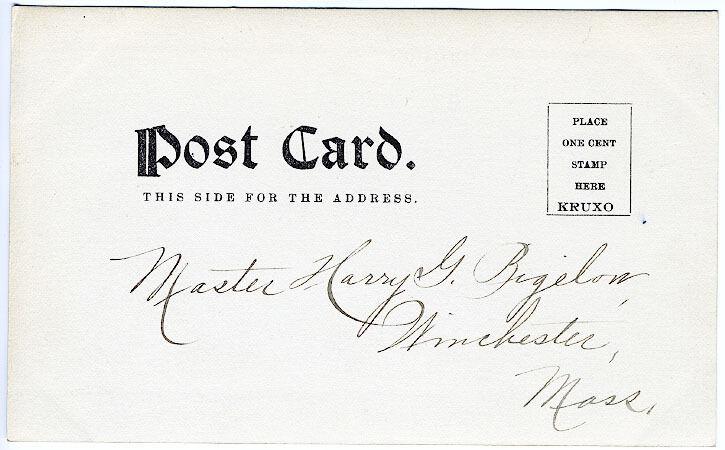 Post Card.
THIS SIDE FOR THE ADDRESS.
PLACE
ONE CENT
STAMP
HERE
KRUXO
Master Harry G. Bigelow,
Winchester,
Mass.